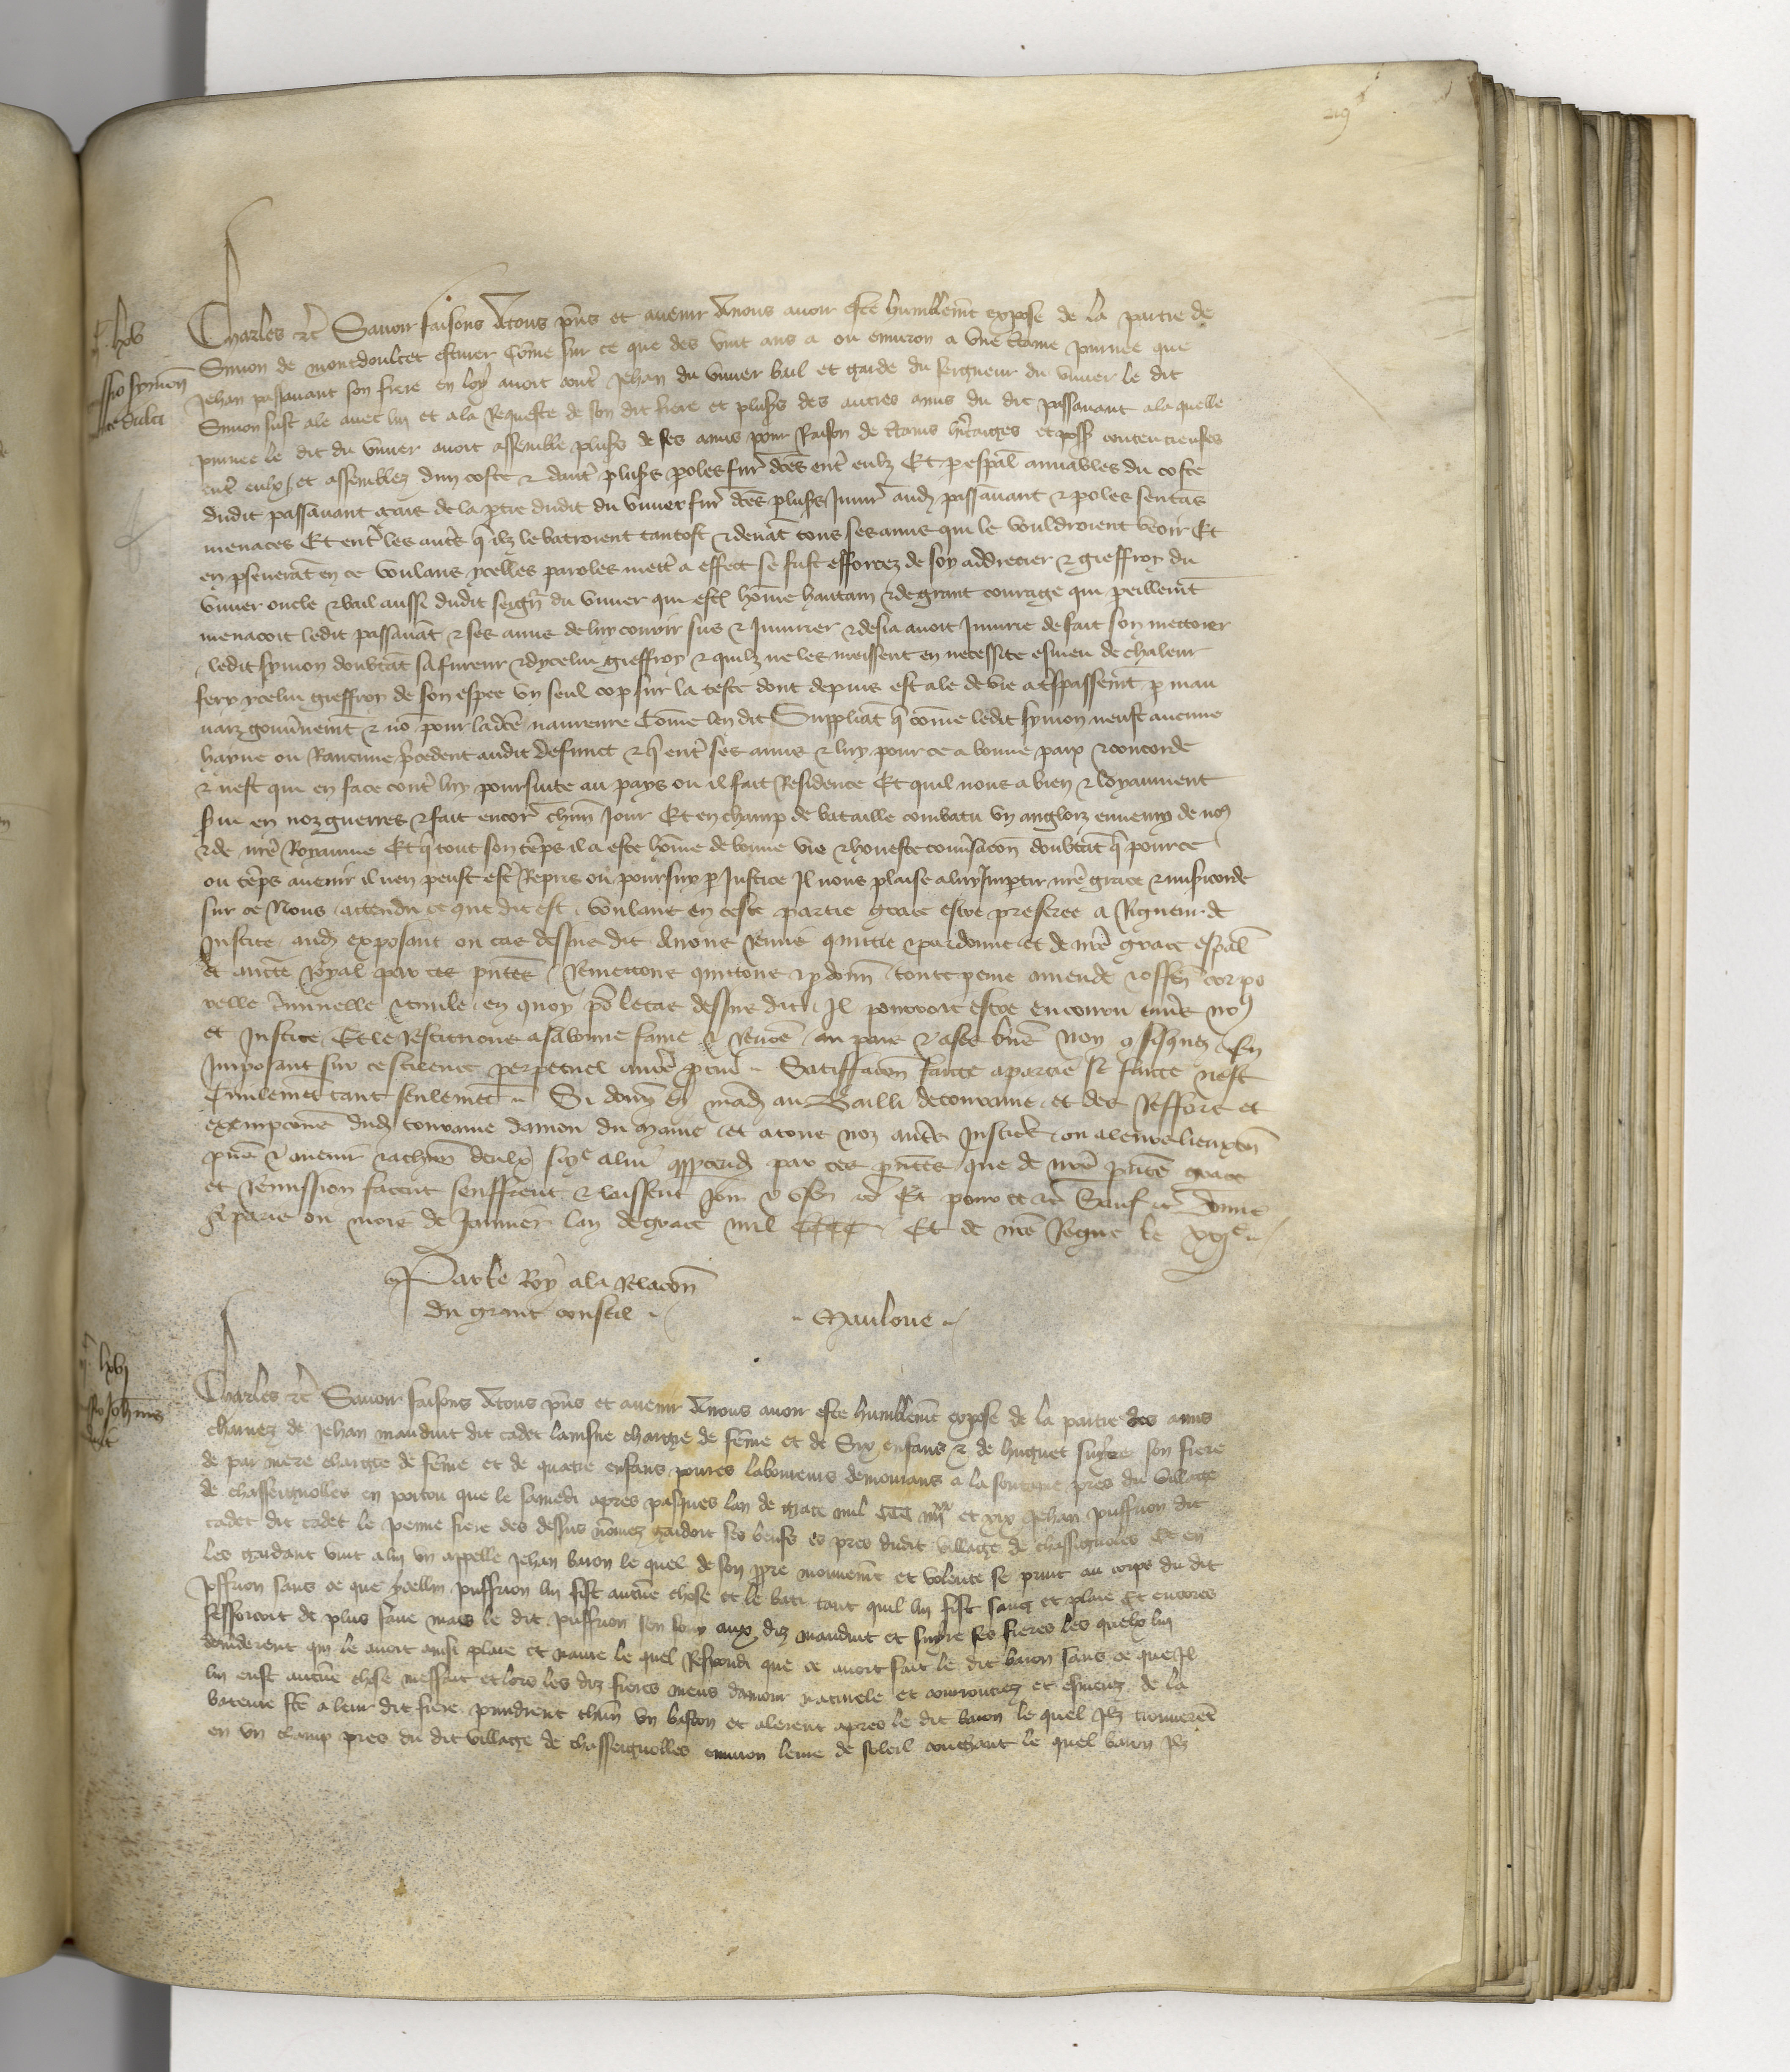 29
lxv
Charles etc Savoir faisons Atous pns et avenir Anous avoir este humblemt expose de la partie de
ssio symon
Simon de montdoulcet escuier Come sur ce que des vint ans a ou environ a une ctaine journee que
Jehan passavant son frere en loy avoit contr Jehan du vivier bail et garde du seigneur du vivier le dit
Simon fust ale avec lui et a la Requeste de son dit frere et plusrs des autres amis du dit passavant a la quelle
journee le dit du vivier avoit assemble plusrs de ses amis pour Raison de ctains hritaiges et poss contencieuses
entr eulx / et assemblez dun coste & dautr plusrs poles furt dces entr eulx Et p espal amiables du coste
dudit passavant mais de la ptie dudit du vivier furt dces plusrs Iniurs aud passavant & poles sentas
menaces Et entr les autrs q ilz le batroient tantost & devat tous ses amis qui le vouldroient veoir Et
en psevrat en ce voulans ycelles paroles mettr a effect se fust efforcez de soy addrecier & gieffroy du
vivier oncle & bail aussi dudit seigr du vivier qui est home hautain & de grant courage qui peillemt
menacoit ledit passavat & ses amis de luy courir sus & Iniurier & desia avoit Iniurie de fait son mettoier
ledit symon doubtat sa fureur & dycelui gieffroy & quilz ne les meissent en necessite esmeu de chaleur
fery ycelui gieffroy de son espee un seul cop sur la teste dont depuis est ale de vie a trspassemt p mau
vaiz gouvnemt & no pour ladce navreure Come len dit Suppliat q come ledit symon neust aucune
hayne ou Rancune precedent audit defunct & q entr ses amis & luy pour ce a bonne paix & concorde
& nest qui en face contr luy poursuite au pays ou il fait Residence Et quil nous a bien & loyaument
svi en noz guerres & fait encor chun Jour Et en champ de bataille combatu un anglois ennemy de no9
& de nre Royaume Et q tout son temps il a este home de bonne vie & honeste convsacon doubtat q pour ce
ou temps avenir il nen peust estr Repris ou poursuy p Justice Il nous plaise a luy Imptir nre grace & misicorde
sur ce Nous attendu ce que dit est voulans en ceste partie grace estre preferee a Rigueur de
Justice aud exposant ou cas dessus dit Avons Remis quittie & pardonne et de nre grace espal
et aucte Royal par ces pntes Remettons quittons & pdonn toute peine amende & offen corpo
relle criminelle & civile en quoy po le cas dessus dit Il pourroit estre encouru envrs no9
et Justice Et le restituons a sa bonne fame & Renoe au pais & a ses biens non 9fisquez En
Imposant sur ce scilence perpetuel a nre pcur Satiffacon faicte a partie se faicte nest
Civilemet tant seulemet Si donn en mad au Bailli de touraine et des Ressors et
exempcons dud touraine danjou du maine et a tous noz autrs Justicrs ou a leurs lieuxten
pns & avenir & a chun deulx sice a lui appartend par ces pntes que de nre pnte grace
et remission facent seuffrent & laissent Joir & user etc Et pour ce etc Sauf etc Donne
a paris ou mois de Janvier lan de grace mil CCCC Et de nre Regne le xxje
Par le Roy a la Relacon
du grant conseil
Mauloue
lxvj
Charles etc Savoir faisons Atous pns et avenir Anous avoir este humblemt expose de la partie des amis
charnez de Jehan mauduit dit cadet lainsne chargie de feme et de Six enfans & de huguet suyre son frere
de par mere chargie de feme et de quatre enfans povres laboureurs demourans a la fontaine pres du village
de chasseignolles en poitou que le samedi apres pasques lan de grace mil CCC iiijxx et xix Jehan Juffrion dit
cadet dit cadet le Jeune frere des dessus nomez gardoit ses beufs es pres dudit village de chassignoles Et en
les gardant vint a lui un appelle Jehan baron le quel de son ppre mouvemt et volente se print au corps du dit
Jffrion sans ce que ycellui Juffrion lui fist aucune chose et le bati tant quil lui fist sang et plaie Et encores
sefforcoit de plus faire mais le dit Juffrion sen fouy aux diz mauduit et suyre ses freres les quelx lui
demderent qui le avoit ainsi plaie et navre le quel Respondi que ce avoit fait le dit baron sans ce que Il
lui eust aucune chose meffait et lors les diz freres meus damour naturele et courrouciez et esmeuz de la
bateure fte a leur dit frere prindrent chun un baston et alerent apres le dit baron le quel Ilz trouveret
en un champ pres du dit village de chasseignolles environ leure de soleil couchant le quel baron Ilz